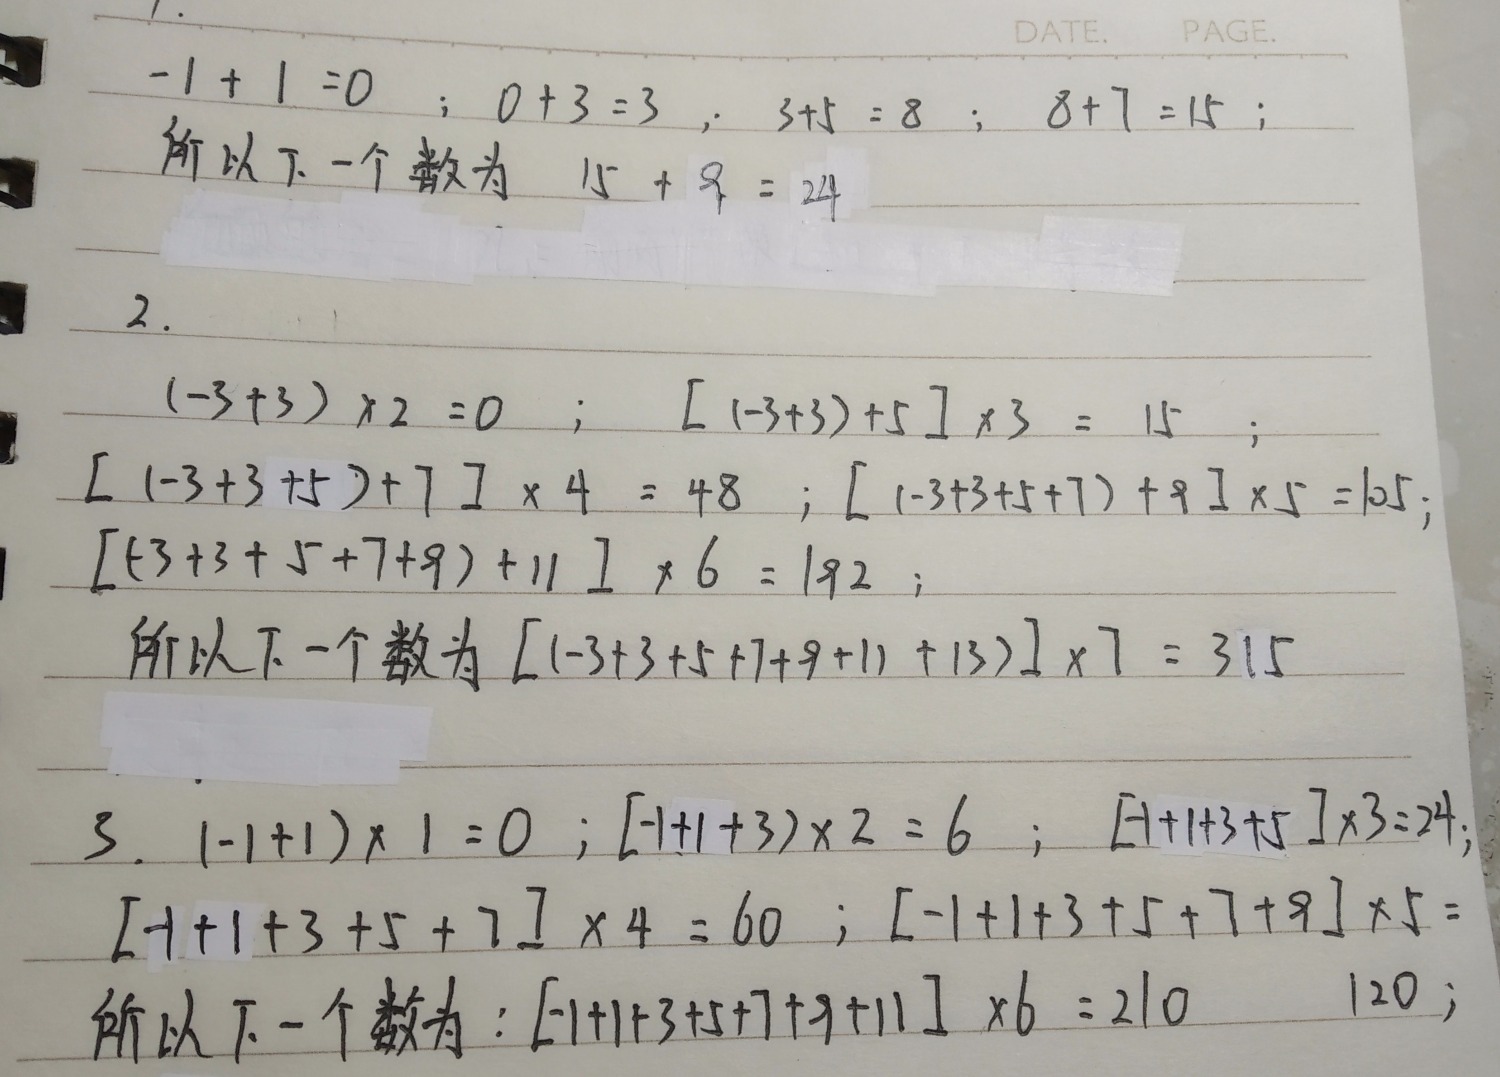 DATE. PAGE.
1.
-1+1=0 ; 0+3=3 ; 3+5=8 ; 8+7=15 ;
所以下一个数为 15+9=24
2.
(-3+3)×2=0 ; [(-3+3)+5]×3=15 ;
[(-3+3+5)+7]×4=48 ; [(-3+3+5+7)+9]×5=105;
[(-3+3+5+7+9)+11]×6=192 ;
所以下一个数为[(-3+3+5+7+9+11+13)]×7=315
3. (-1+1)×1=0 ; [-1+1+3)×2=6 ; [-1+1+3+5]×3=24;
[-1+1+3+5+7]×4=60 ; [-1+1+3+5+7+9]×5=
120 ;
所以下一个数为:[-1+1+3+5+7+9+11]×6=210